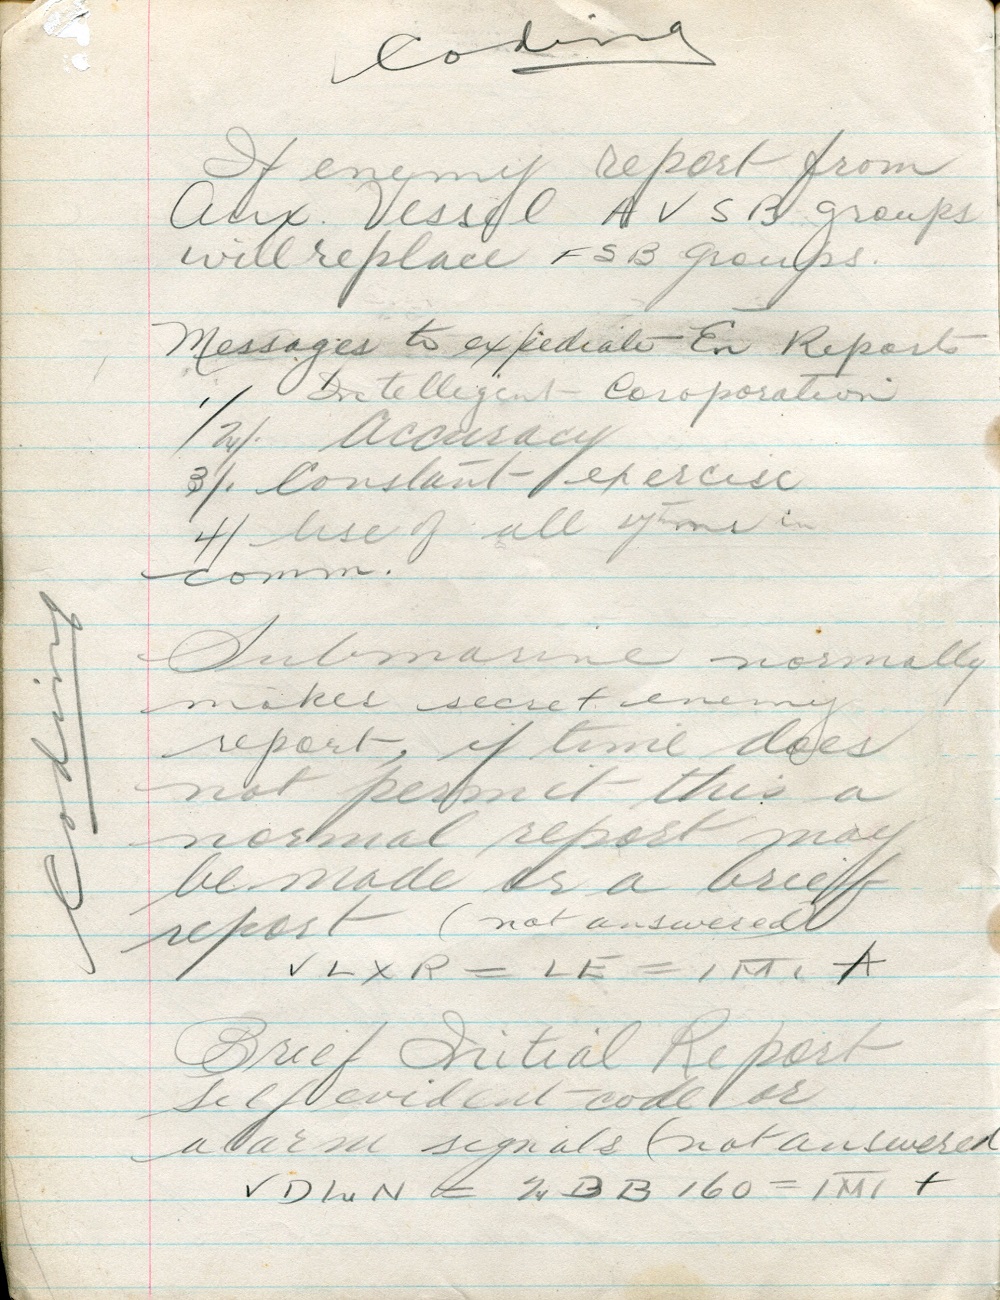 Coding
If enemy report from
Aux. Vessel A V S B groups
will replace FSB groups.
Messages to expediate En Reports
1/ Intelligent Coroporation
2/. Accuracy
3/. Constant exercise
4/ Use of all in
comm.
Submarine normally
makes secret enemy
report, if time does
not permit this a
normal report may
be made or a brief
report (not answered)
VLXR = LE = IMI A
Brief Initial Report
self evident code or
alarm signals (not answered
= 2 BB 160 = IMI +
Coding